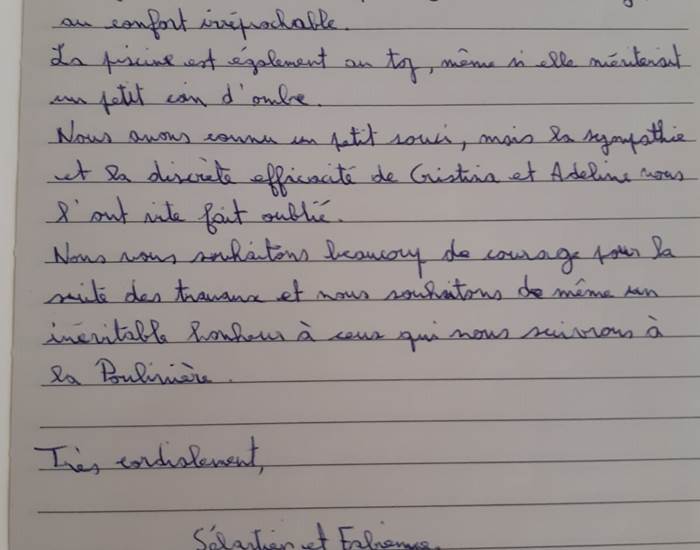 au confort irréprochable.
La piscine est également au top, même si elle mériterait
un petit coin d'ombre.
Nous avons connu un petit souci, mais la sympathie
et la discrète efficacité de Cristina et Adeline nous
l'ont vite fait oublié.
Nous vous souhaitons beaucoup de courage pour la
suite des travaux et nous souhaitons de même un
inévitable bonheur à ceux qui nous suivrons à
la Poulinière.
Très cordialement,
Sébastien et Fabienne.